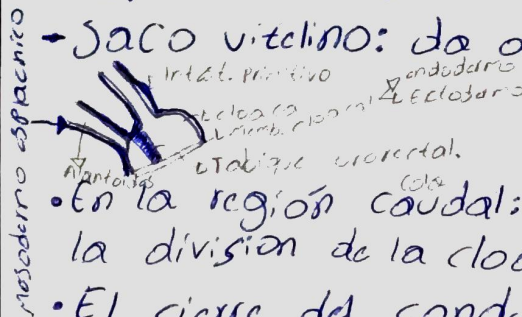 Mesodermo esplacnico
- Saco vitelino: da o
Intest. Primitivo
endodermo
Ectodermo
cloaca
Memb. cloacal
Tabique urorectal.
Alantoides
cola
• En la región caudal:
la division de la cloa
• El cierre del cond